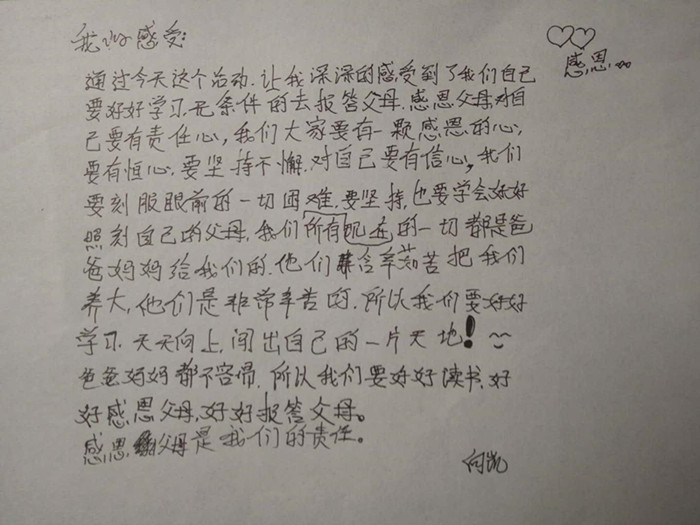 我的感受:
感恩...
通过今天这个活动.让我深深的感受到了我们自己
要好好学习.无条件的去报答父母.感恩父母对自
己要有责任心,我们大家要有一颗感恩的心,
要有恒心.要坚持不懈.对自己要有信心,我们
要刻服眼前的一切困难,要坚持,也要学会好好
照刻自己的父母,我们所有现在的一切都是爸
爸妈妈给我们的.他们含辛茹苦把我们
养大,他们是非常辛苦的.所以我们要好好
学习.天天向上,闯出自己的一片天地!
爸爸妈妈都不容易.所以我们要好好读书.好
好感恩父母,好好报答父母。
感恩父母是我们的责任。
向凯